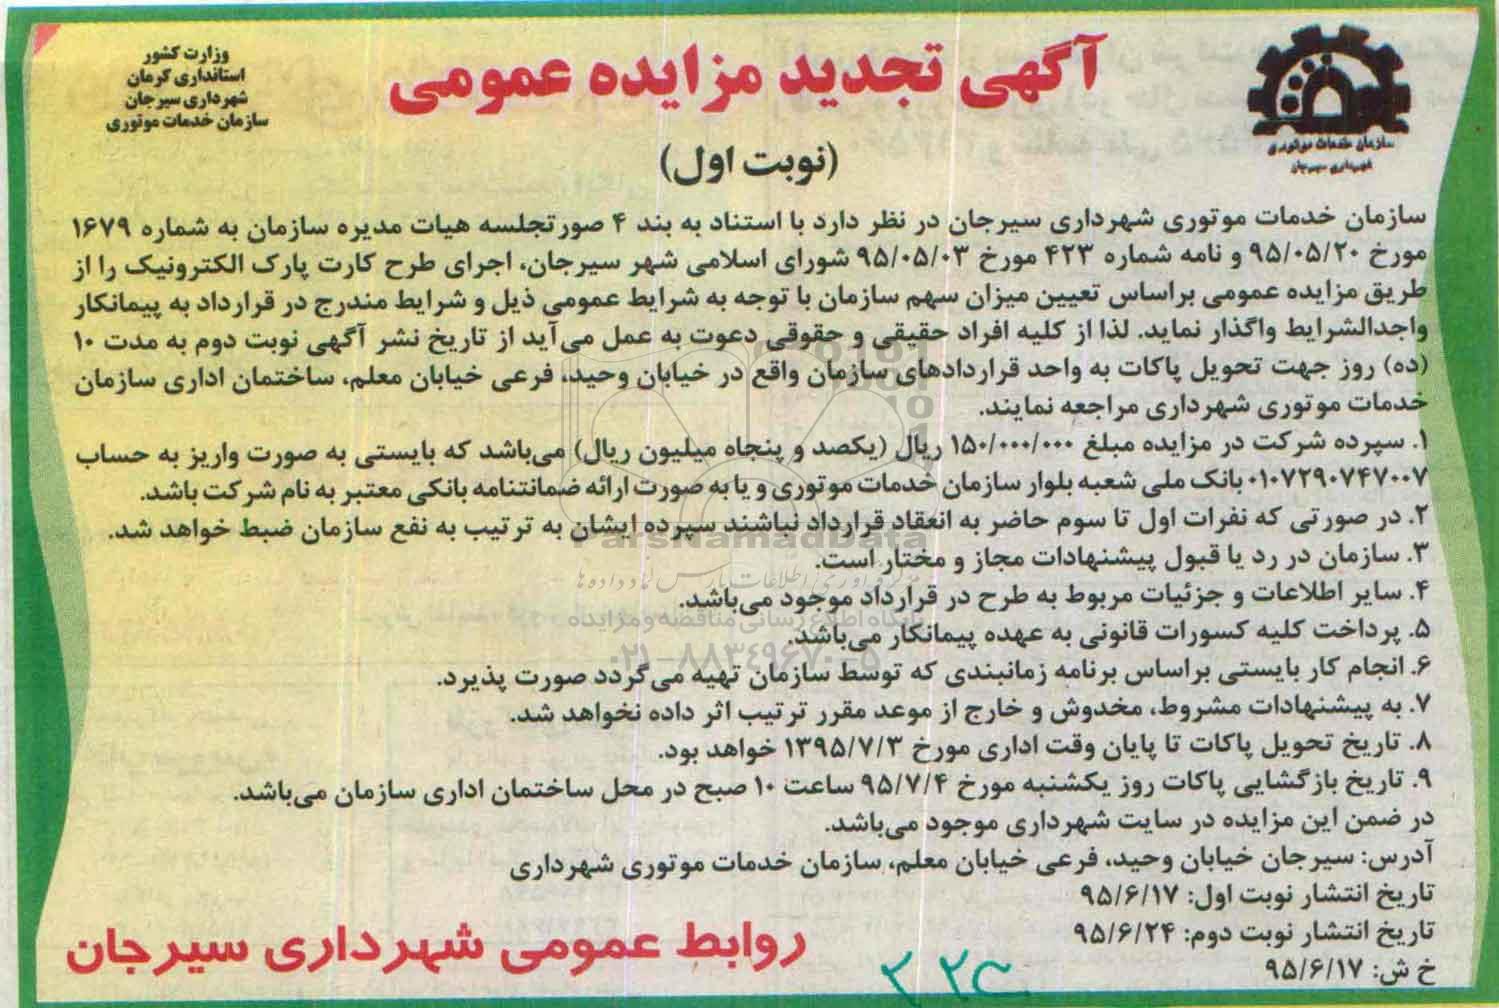 وزارت کشور
استانداری کرمان
شهرداری سیرجان
سازمان خدمات موتوری
سازمان خدمات موتوری
شهرداری سیرجان
آگهی تجدید مزایده عمومی
(نوبت اول)
سازمان خدمات موتوری شهرداری سیرجان در نظر دارد با استناد به بند ۴ صورتجلسه هیات مدیره سازمان به شماره ۱۶۷۹
مورخ ۹۵/۰۵/۲۰ و نامه شماره ۴۲۳ مورخ ۹۵/۰۵/۰۳ شورای اسلامی شهر سیرجان، اجرای طرح کارت پارک الکترونیک را از
طریق مزایده عمومی براساس تعیین میزان سهم سازمان با توجه به شرایط عمومی ذیل و شرایط مندرج در قرارداد به پیمانکار
واجدالشرایط واگذار نماید. لذا از کلیه افراد حقیقی و حقوقی دعوت به عمل می‌آید از تاریخ نشر آگهی نوبت دوم به مدت ۱۰
(ده) روز جهت تحویل پاکات به واحد قراردادهای سازمان واقع در خیابان وحید، فرعی خیابان معلم، ساختمان اداری سازمان
خدمات موتوری شهرداری مراجعه نمایند.
۱. سپرده شرکت در مزایده مبلغ ۱۵۰/۰۰۰/۰۰۰ ریال (یکصد و پنجاه میلیون ریال) می‌باشد که بایستی به صورت واریز به حساب
۰۱۰۷۲۹۰۷۴۷۰۰۷ بانک ملی شعبه بلوار سازمان خدمات موتوری و یا به صورت ارائه ضمانتنامه بانکی معتبر به نام شرکت باشد.
۲. در صورتی که نفرات اول تا سوم حاضر به انعقاد قرارداد نباشند سپرده ایشان به ترتیب به نفع سازمان ضبط خواهد شد.
۳. سازمان در رد یا قبول پیشنهادات مجاز و مختار است.
۴. سایر اطلاعات و جزئیات مربوط به طرح در قرارداد موجود می‌باشد.
۵. پرداخت کلیه کسورات قانونی به عهده پیمانکار می‌باشد.
۶. انجام کار بایستی براساس برنامه زمانبندی که توسط سازمان تهیه می‌گردد صورت پذیرد.
۷. به پیشنهادات مشروط، مخدوش و خارج از موعد مقرر ترتیب اثر داده نخواهد شد.
۸. تاریخ تحویل پاکات تا پایان وقت اداری مورخ ۱۳۹۵/۷/۳ خواهد بود.
۹. تاریخ بازگشایی پاکات روز یکشنبه مورخ ۹۵/۷/۴ ساعت ۱۰ صبح در محل ساختمان اداری سازمان می‌باشد.
در ضمن این مزایده در سایت شهرداری موجود می‌باشد.
آدرس: سیرجان خیابان وحید، فرعی خیابان معلم، سازمان خدمات موتوری شهرداری
تاریخ انتشار نوبت اول: ۹۵/۶/۱۷
تاریخ انتشار نوبت دوم: ۹۵/۶/۲۴
خ ش: ۹۵/۶/۱۷
روابط عمومی شهرداری سیرجان
ParsNamadData
پایگاه اطلاع رسانی مناقصه و مزایده
۰۲۱-۸۸۳۴۹۶۷۰-۵